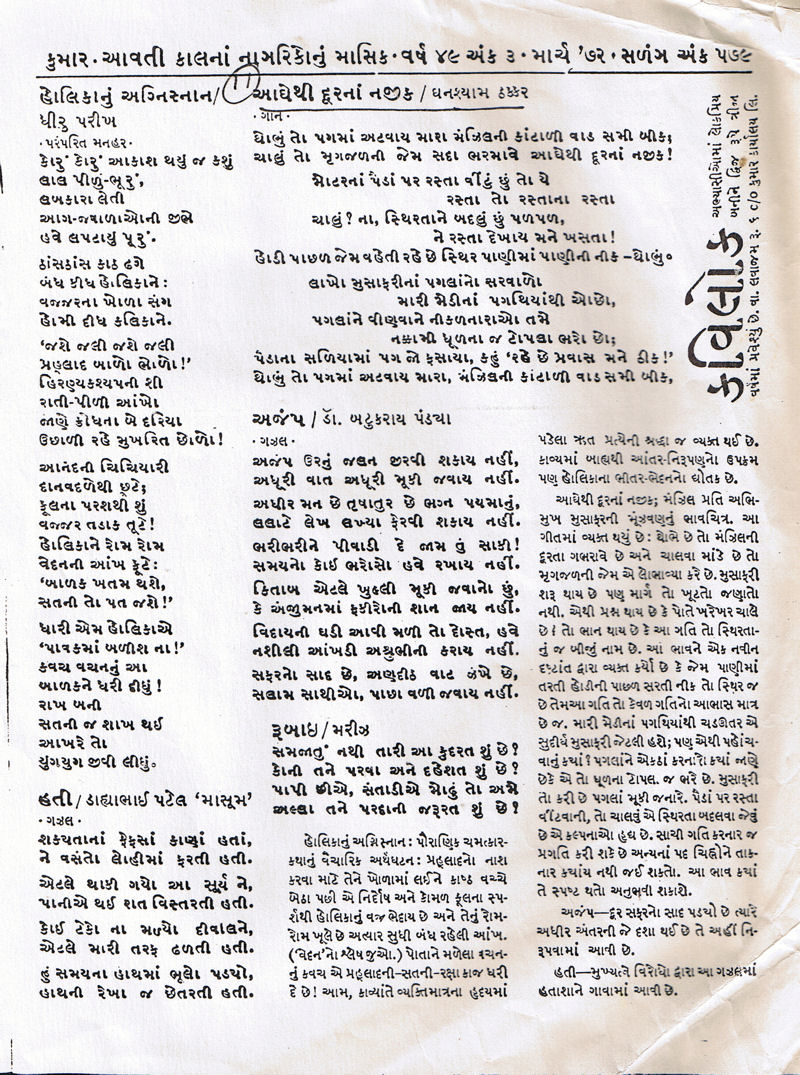 કુમાર · આવતી કાલનાં નાગરિકોનું માસિક · વર્ષ ૪૯ અંક ૩ · માર્ચ '૭૨ · સળંગ અંક ૫૭૯
હોલિકાનું અગ્નિસ્નાન/
ધીરુ પરીખ
· પરંપરિત મનહર ·
કોરું કોરું આકાશ થયું જ કશું
લાલ પીળું-ભૂરું,
લબકારા લેતી
આગ-જ્વાળાઓની જીભે
હવે લપટાયું પૂરું.
ઠાંસઠાંસ કાઠ ઢગે
બંધ કીધ હોલિકાને:
વજ્જરના ખોળા સંગ
હોમી દીધ કલિકાને.
'જશે જલી જશે જલી
પ્રહ્લાદ બાળો ભોળો!'
હિરણ્યકશ્યપની શી
રાતી-પીળી આંખો
જાણે ક્રોધના બે દરિયા
ઉછાળી રહે મુખરિત છોળો!
આનંદની ચિચિયારી
દાનવદળેથી છૂટે;
ફૂલના પરશથી શું
વજ્જર તડાક તૂટે!
હોલિકાને રોમ રોમ
વેદનની આંખ ફૂટે:
'બાળક ખતમ થશે,
સતની તો પત જશે!'
ધારી એમ હોલિકાએ
'પાવકમાં બળીશ ના!'
કવચ વચનનું આ
બાળકને ધરી દીધું!
રાખ બની
સતની જ શાખ થઈ
આખરે તો
યુગયુગ જીવી લીધું.
હતી/ડાહ્યાભાઈ પટેલ 'માસૂમ'
· ગઝલ ·
શક્યતાનાં ફેફસાં કાણાં હતાં,
ને વસંતો લોહીમાં ફરતી હતી.
એટલે થાકી ગયો આ સૂર્ય ને,
પાનીએ થઈ રાત વિસ્તરતી હતી.
કોઈ ટેકો ના મળ્યો દીવાલને,
એટલે મારી તરફ ઢળતી હતી.
હું સમયના હાથમાં ભૂલો પડ્યો,
હાથની રેખા જ છેતરતી હતી.
11
આઘેથી દૂરનાં નજીક / ઘનશ્યામ ઠક્કર
· ગાન ·
થોભું તો પગમાં અટવાય મારા મંઝિલની કાંટાળી વાડ સમી બીક;
ચાલું તો મૃગજળની જેમ સદા ભરમાવે આઘેથી દૂરનાં નજીક!
મોટરનાં પૈડાં પર રસ્તા વીંટું છું તો યે
રસ્તા તો રસ્તાના રસ્તા
ચાલું? ના, સ્થિરતાને બદલું છું પળપળ,
ને રસ્તા દેખાય મને ખસતા!
હોડી પાછળ જેમ વહેતી રહે છે સ્થિર પાણીમાં પાણીની નીક –થોભું૦
લાખો મુસાફરીનાં પગલાંનો સરવાળો
મારી મેડીનાં પગથિયાંથી ઓછો,
પગલાંને વીણવાને નીકળનારાઓ તમે
નક્કામી ધૂળના જ ટોપલા ભરો છો;
પૈડાના સળિયામાં પગ જો ફસાયા, કહું 'રહે છે પ્રવાસ મને ઠીક!'
થોભું તો પગમાં અટવાય મારા, મંઝિલની કાંટાળી વાડ સમી બીક,
અજંપ / ડૉ. બટુકરાય પંડ્યા
· ગઝલ ·
અજંપ ઉરનું જલન જીરવી શકાય નહીં,
અધૂરી વાત અધૂરી મૂકી જવાય નહીં.
અધીર મન છે તૃષાતુર છે ભગ્ન પયમાનું,
લલાટે લેખ લખ્યા ફેરવી શકાય નહીં.
ભરીભરીને પીવાડી દે જામ તું સાકી!
સમયનો કોઈ ભરોસો હવે રખાય નહીં.
કિતાબ એટલે ખુલ્લી મૂકી જવાનો છું,
કે અંજુમનમાં ફકીરોની શાન જાય નહીં.
વિદાયની ઘડી આવી મળી તો દોસ્ત, હવે
નશીલી આંખડી અશ્રુભીની કરાય નહીં.
સફરનો સાદ છે, અણદીઠ વાટ ઝંખે છે,
સલામ સાથીઓ, પાછા વળી જવાય નહીં.
રુબાઇ / મરીઝ
સમજાતું નથી તારી આ કુદરત શું છે?
કોની તને પરવા અને દહેશત શું છે?
પાપી છીએ, સંતાડીએ મોઢું તો અમે
અલ્લા તને પરદાની જરૂરત શું છે?
હોલિકાનું અગ્નિસ્નાન: પૌરાણિક ચમત્કાર-
કથાનું વૈચારિક અર્થઘટન: પ્રહ્લાદનો નાશ
કરવા માટે તેને ખોળામાં લઈને કાષ્ઠ વચ્ચે
બેઠા પછી એ નિર્દોષ અને કોમળ ફૂલના સ્પ-
ર્શથી હોલિકાનું વજ્ર ભેદાય છે અને તેનું રોમ-
રોમ ખૂલે છે અત્યાર સુધી બંધ રહેલી આંખ.
('વેદન'નો શ્લેષ જુઓ.) પોતાને મળેલા વચન-
નું કવચ એ પ્રહ્લાદની-સતની-રક્ષા કાજ ધરી
દે છે! આમ, કાવ્યાંતે વ્યક્તિમાત્રના હૃદયમાં
પડેલા ઋત પ્રત્યેની શ્રદ્ધા જ વ્યક્ત થઈ છે.
કાવ્યમાં બાહ્યથી આંતર-નિરૂપણનો ઉપક્રમ
પણ હોલિકાના ભીતર-ભેદનનો દ્યોતક છે.
આઘેથી દૂરનાં નજીક; મંઝિલ પ્રતિ અભિ-
મુખ મુસાફરની મૂંઝવણનું ભાવચિત્ર. આ
ગીતમાં વ્યક્ત થયું છે: થોભે છે તો મંઝિલની
દૂરતા ગભરાવે છે અને ચાલવા માંડે છે તો
મૃગજળની જેમ એ લોભાવ્યા કરે છે. મુસાફરી
શરૂ થાય છે પણ માર્ગ તો ખૂટતો જણાતો
નથી. એથી પ્રશ્ન થાય છે કે પોતે ખરેખર ચાલે
છે? તો ભાન થાય છે કે આ ગતિ તો સ્થિરતા-
નું જ બીજું નામ છે. આ ભાવને એક નવીન
દૃષ્ટાંત દ્વારા વ્યક્ત કર્યો છે કે જેમ પાણીમાં
તરતી હોડીની પાછળ સરતી નીક તો સ્થિર જ
છે તેમ આ ગતિ તો કેવળ ગતિનો આભાસ માત્ર
છે જ. મારી મેડીનાં પગથિયાંથી ચડઊતર એ
સુદીર્ઘ મુસાફરી જેટલી હશે; પણ એથી પહોંચ-
વાનું ક્યાં? પગલાંને એકઠાં કરનારો ક્યાં જાણે
છે કે એ તો ધૂળના ટોપલા જ ભરે છે. મુસાફરી
તો કરી છે પગલાં મૂકી જનારે. પૈડાં પર રસ્તા
વીંટવાની, તો ચાલવું એ સ્થિરતા બદલવા જેવું
છે એ કલ્પનાઓ હૃદ્ય છે. સાચી ગતિ કરનાર જ
પ્રગતિ કરી શકે છે અન્યનાં પદ ચિહ્નોને તાક-
નાર ક્યાંય નથી જઈ શકતો. આ ભાવ ક્યાં
તે સ્પષ્ટ થતો અનુભવી શકાશે.
અજંપ—દૂર સફરનો સાદ પડ્યો છે ત્યારે
અધીર અંતરની જે દશા થઈ છે તે અહીં નિ-
રૂપવામાં આવી છે.
હતી—મુખ્યત્વે વિરોધો દ્વારા આ ગઝલમાં
હતાશાને ગાવામાં આવી છે.
કવિલોક
અભ્યાસીઓમાં લોકપ્રિય
બનીને દ્વિજ રૂપે ત્રીજા
વર્ષમાં પ્રવેશ્યું છે. વા. લવાજમ રૂ. ૬ C/O કુમાર કાર્યાલય લિ.